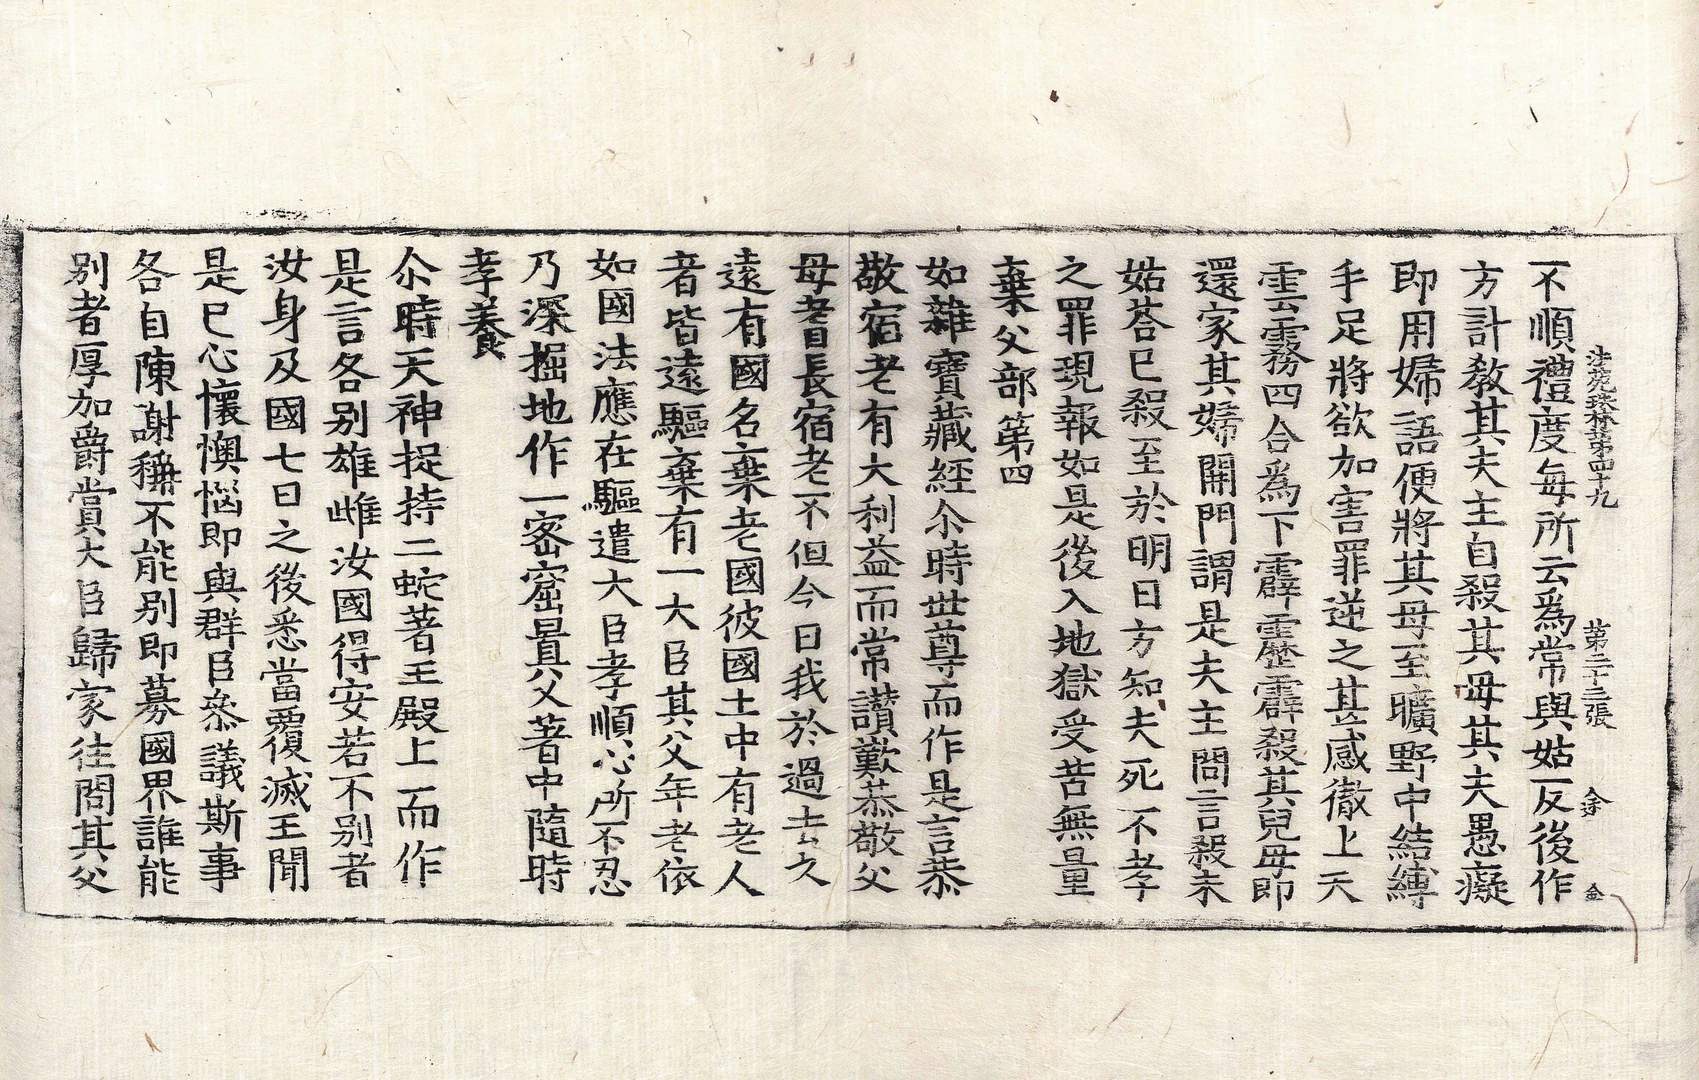 法苑珠林第四十九　第二十二張　𡊮　金
不順禮度每所云爲常與姑反後作
方計教其夫主自殺其母其夫愚癡
即用婦語便將其母至曠野中結縛
手足將欲加害罪逆之甚感徹上天
雲霧四合爲下霹靂霹殺其兒母即
還家其婦開門謂是夫主問言殺未
姑荅已殺至於明日方知夫死不孝
之罪現報如是後入地獄受苦無量
棄父部第四
如雜寶藏經尒時世尊而作是言恭
敬宿老有大利益而常讃歎恭敬父
母耆長宿老不但今日我於過去久
遠有國名棄老國彼國土中有老人
者皆遠驅棄有一大臣其父年老依
如國法應在驅遣大臣孝順心所不忍
乃深掘地作一密窟置父著中隨時
孝養
尒時天神捉持二蛇著王殿上而作
是言各别雄雌汝國得安若不别者
汝身及國七日之後悉當覆滅王聞
是已心懷懊惱即與群臣叅議斯事
各自陳謝稱不能别即募國界誰能
别者厚加爵賞大臣歸家往問其父